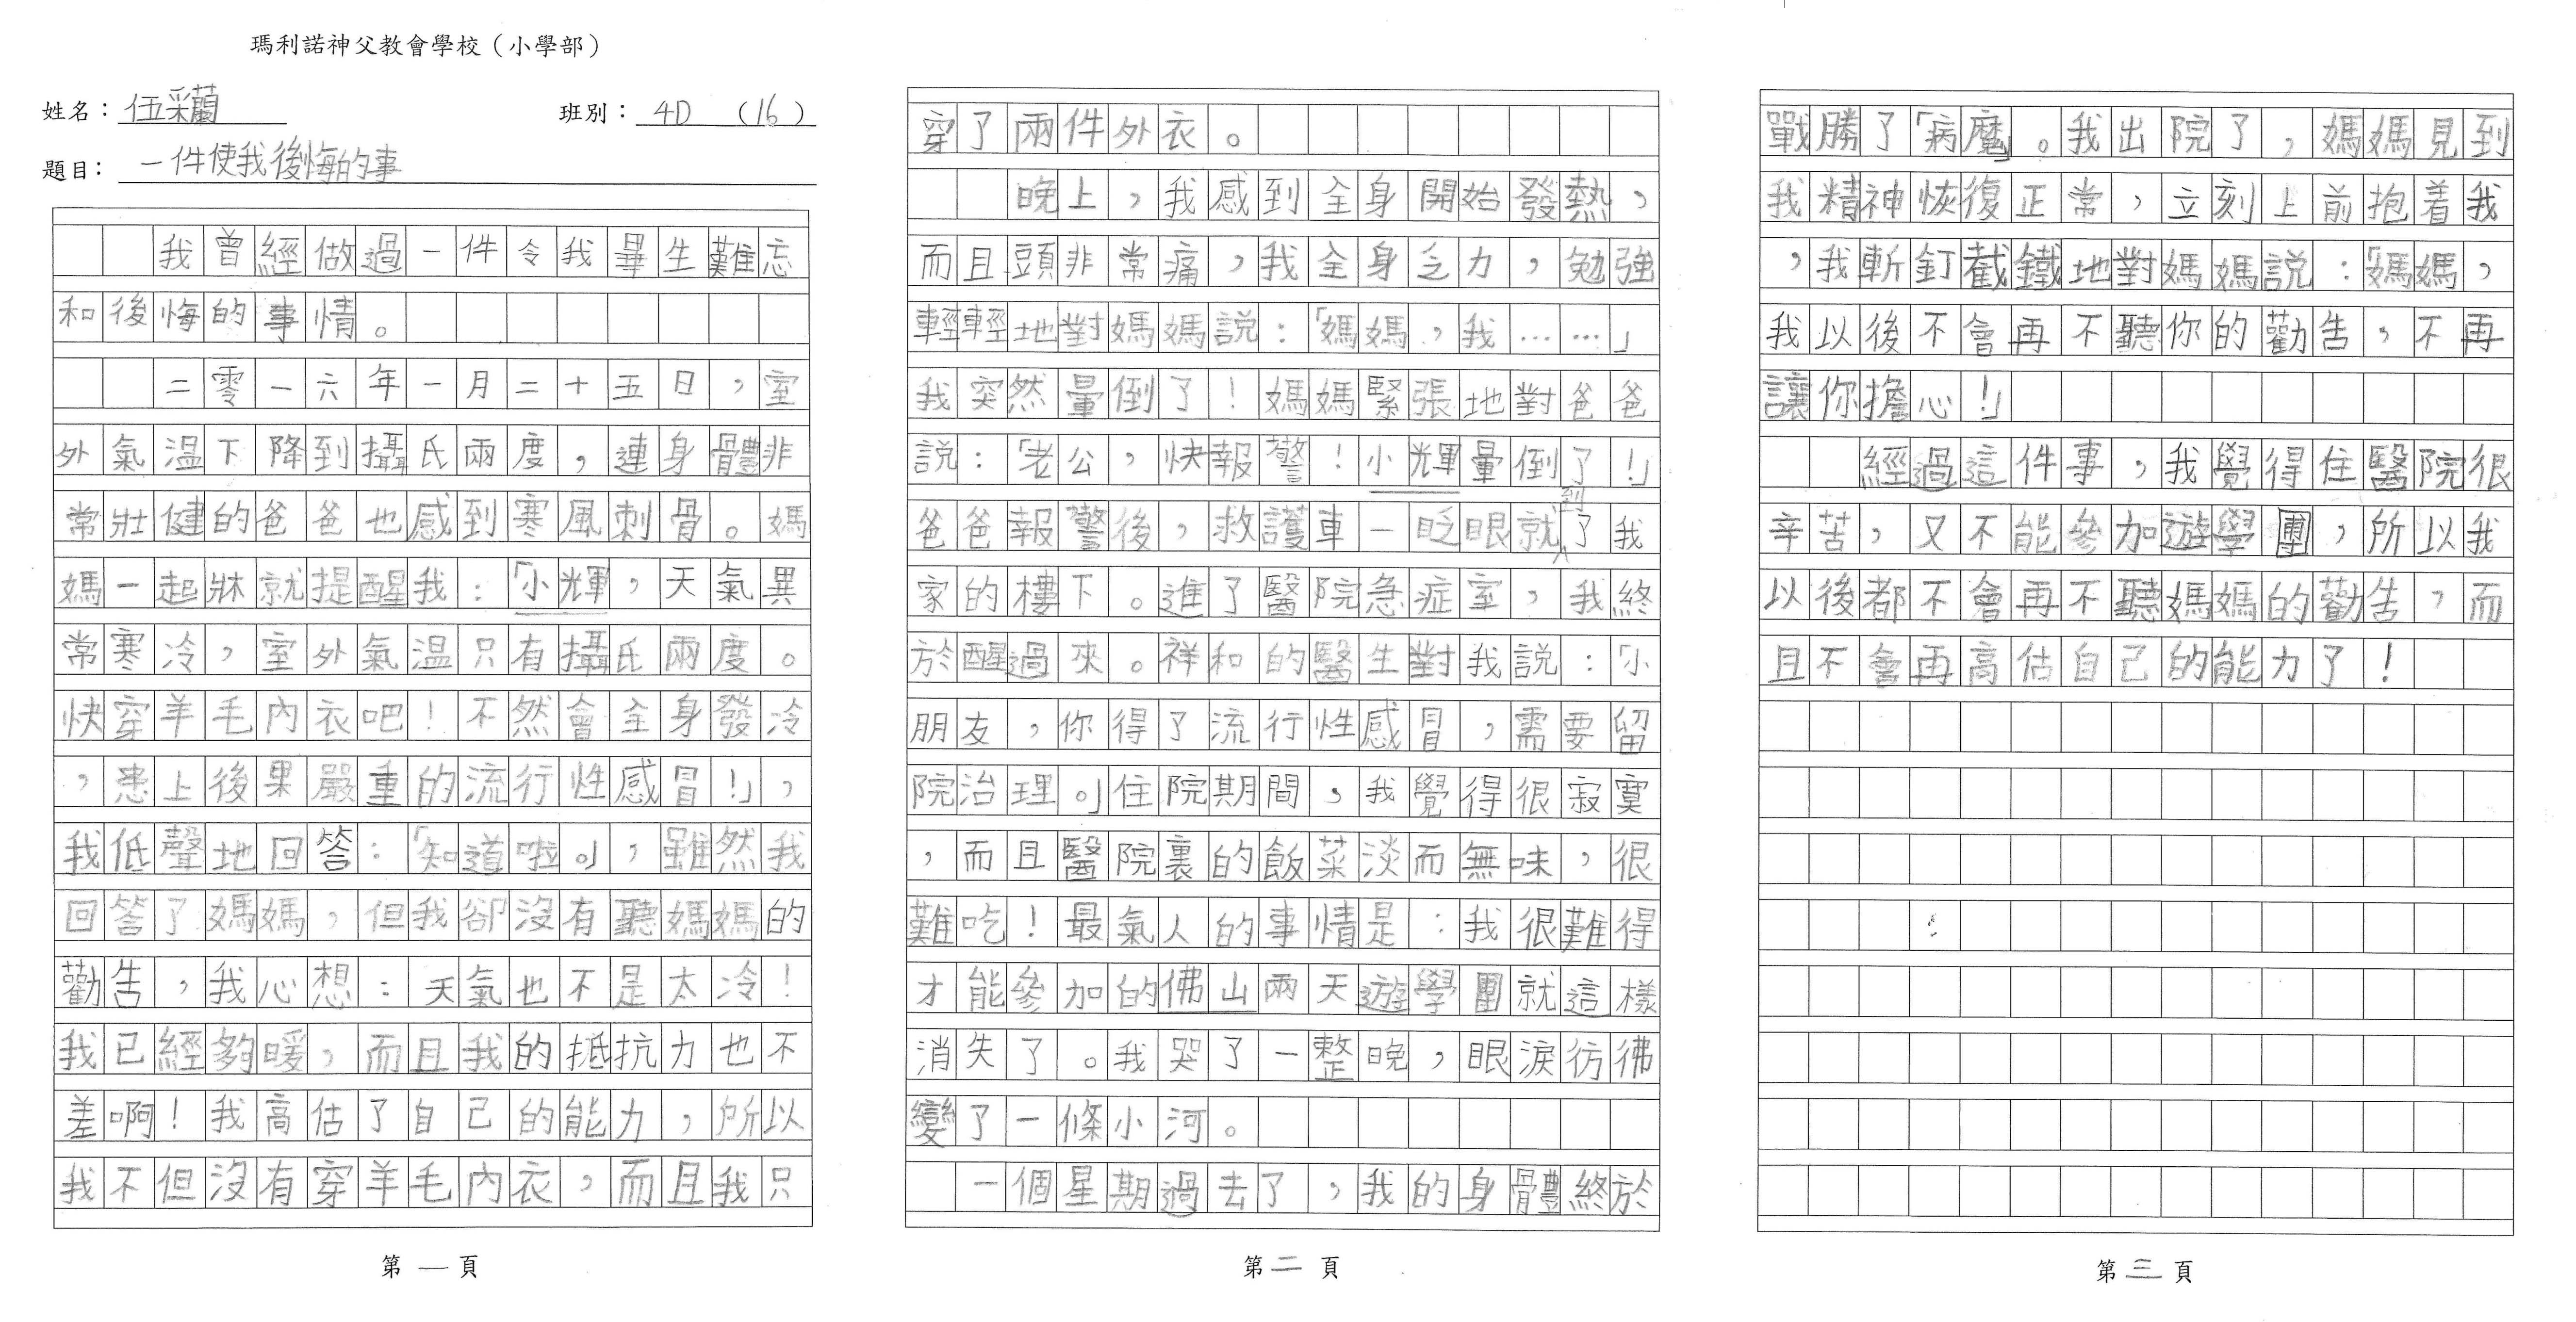 瑪利諾神父教會學校（小學部）
姓名：伍采蘭
班別：4D （16）
題目：一件使我後悔的事
我曾經做過一件令我畢生難忘
和後悔的事情。
二零一六年一月二十五日，室
外氣温下降到攝氏兩度，連身體非
常壯健的爸爸也感到寒風刺骨。媽
媽一起牀就提醒我：「小輝，天氣異
常寒冷，室外氣温只有攝氏兩度。
快穿羊毛內衣吧！不然會全身發冷
，患上後果嚴重的流行性感冒！」，
我低聲地回答：「知道啦。」，雖然我
回答了媽媽，但我卻沒有聽媽媽的
勸告，我心想：天氣也不是太冷！
我已經夠暖，而且我的抵抗力也不
差啊！我高估了自己的能力，所以
我不但沒有穿羊毛內衣，而且我只
第一頁
穿了兩件外衣。
晚上，我感到全身開始發熱，
而且頭非常痛，我全身乏力，勉強
輕輕地對媽媽說：「媽媽，我……」
我突然暈倒了！媽媽緊張地對爸爸
說：「老公，快報警！小輝暈倒了！」
爸爸報警後，救護車一眨眼就到了我
家的樓下。進了醫院急症室，我終
於醒過來。祥和的醫生對我說：「小
朋友，你得了流行性感冒，需要留
院治理。」住院期間，我覺得很寂寞
，而且醫院裏的飯菜淡而無味，很
難吃！最氣人的事情是：我很難得
才能參加的佛山兩天遊學團就這樣
消失了。我哭了一整晚，眼淚彷彿
變了一條小河。
一個星期過去了，我的身體終於
第二頁
戰勝了「病魔」。我出院了，媽媽見到
我精神恢復正常，立刻上前抱着我
，我斬釘截鐵地對媽媽說：「媽媽，
我以後不會再不聽你的勸告，不再
讓你擔心！」
經過這件事，我覺得住醫院很
辛苦，又不能參加遊學團，所以我
以後都不會再不聽媽媽的勸告，而
且不會再高估自己的能力了！
第三頁